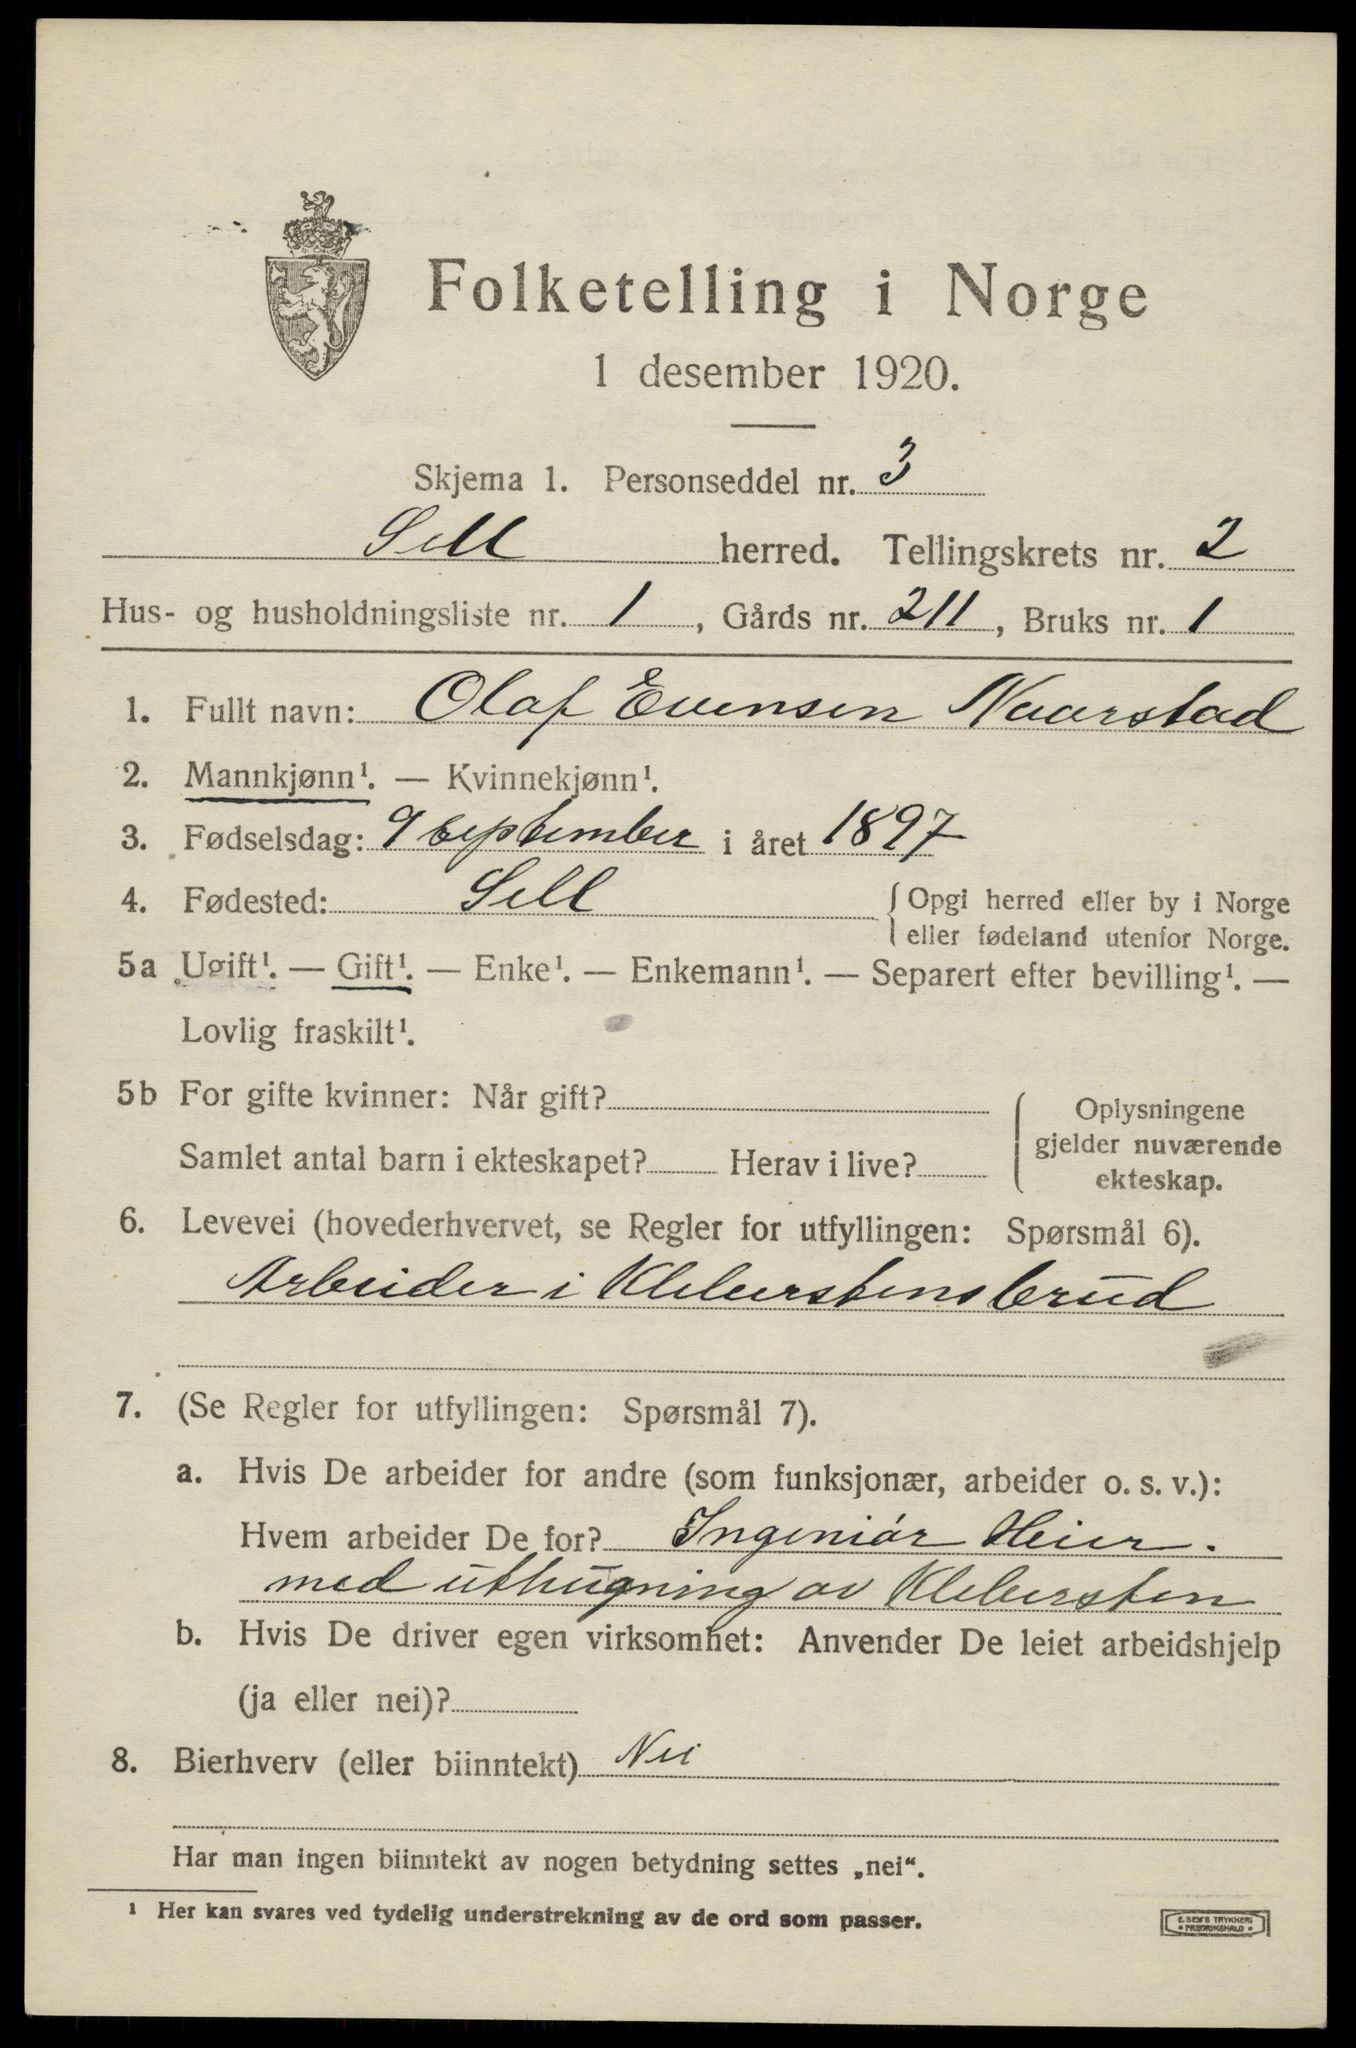 Folketelling i Norge
1 desember 1920.
Skjema 1. Personseddel nr. 3
Sell herred. Tellingskrets nr. 2
Hus- og husholdningsliste nr. 1, Gårds nr. 211, Bruks nr. 1
1. Fullt navn: Olaf Evensen Naarstad
2. Mannkjønn¹. — Kvinnekjønn¹.
3. Fødselsdag: 9 september i året 1897
4. Fødested: Sell { Opgi herred eller by i Norge
eller fødeland utenfor Norge.
5a Ugift¹. — Gift¹. — Enke¹. — Enkemann¹. — Separert efter bevilling¹. —
Lovlig fraskilt¹.
5b For gifte kvinner: Når gift?
Samlet antal barn i ekteskapet? Herav i live?
{ Oplysningene
gjelder nuværende
ekteskap.
6. Levevei (hovederhvervet, se Regler for utfyllingen: Spørsmål 6).
Arbeider i Kleberstensbrud
7. (Se Regler for utfyllingen: Spørsmål 7).
a. Hvis De arbeider for andre (som funksjonær, arbeider o. s. v.):
Hvem arbeider De for? Ingeniór Heier.
med uthugning av Klebersten
b. Hvis De driver egen virksomhet: Anvender De leiet arbeidshjelp
(ja eller nei)?
8. Bierhverv (eller biinntekt) Nei
Har man ingen biinntekt av nogen betydning settes „nei“.
¹ Her kan svares ved tydelig understrekning av de ord som passer.
E. SEM'S TRYKKERI
* FREDRIKSHALD *